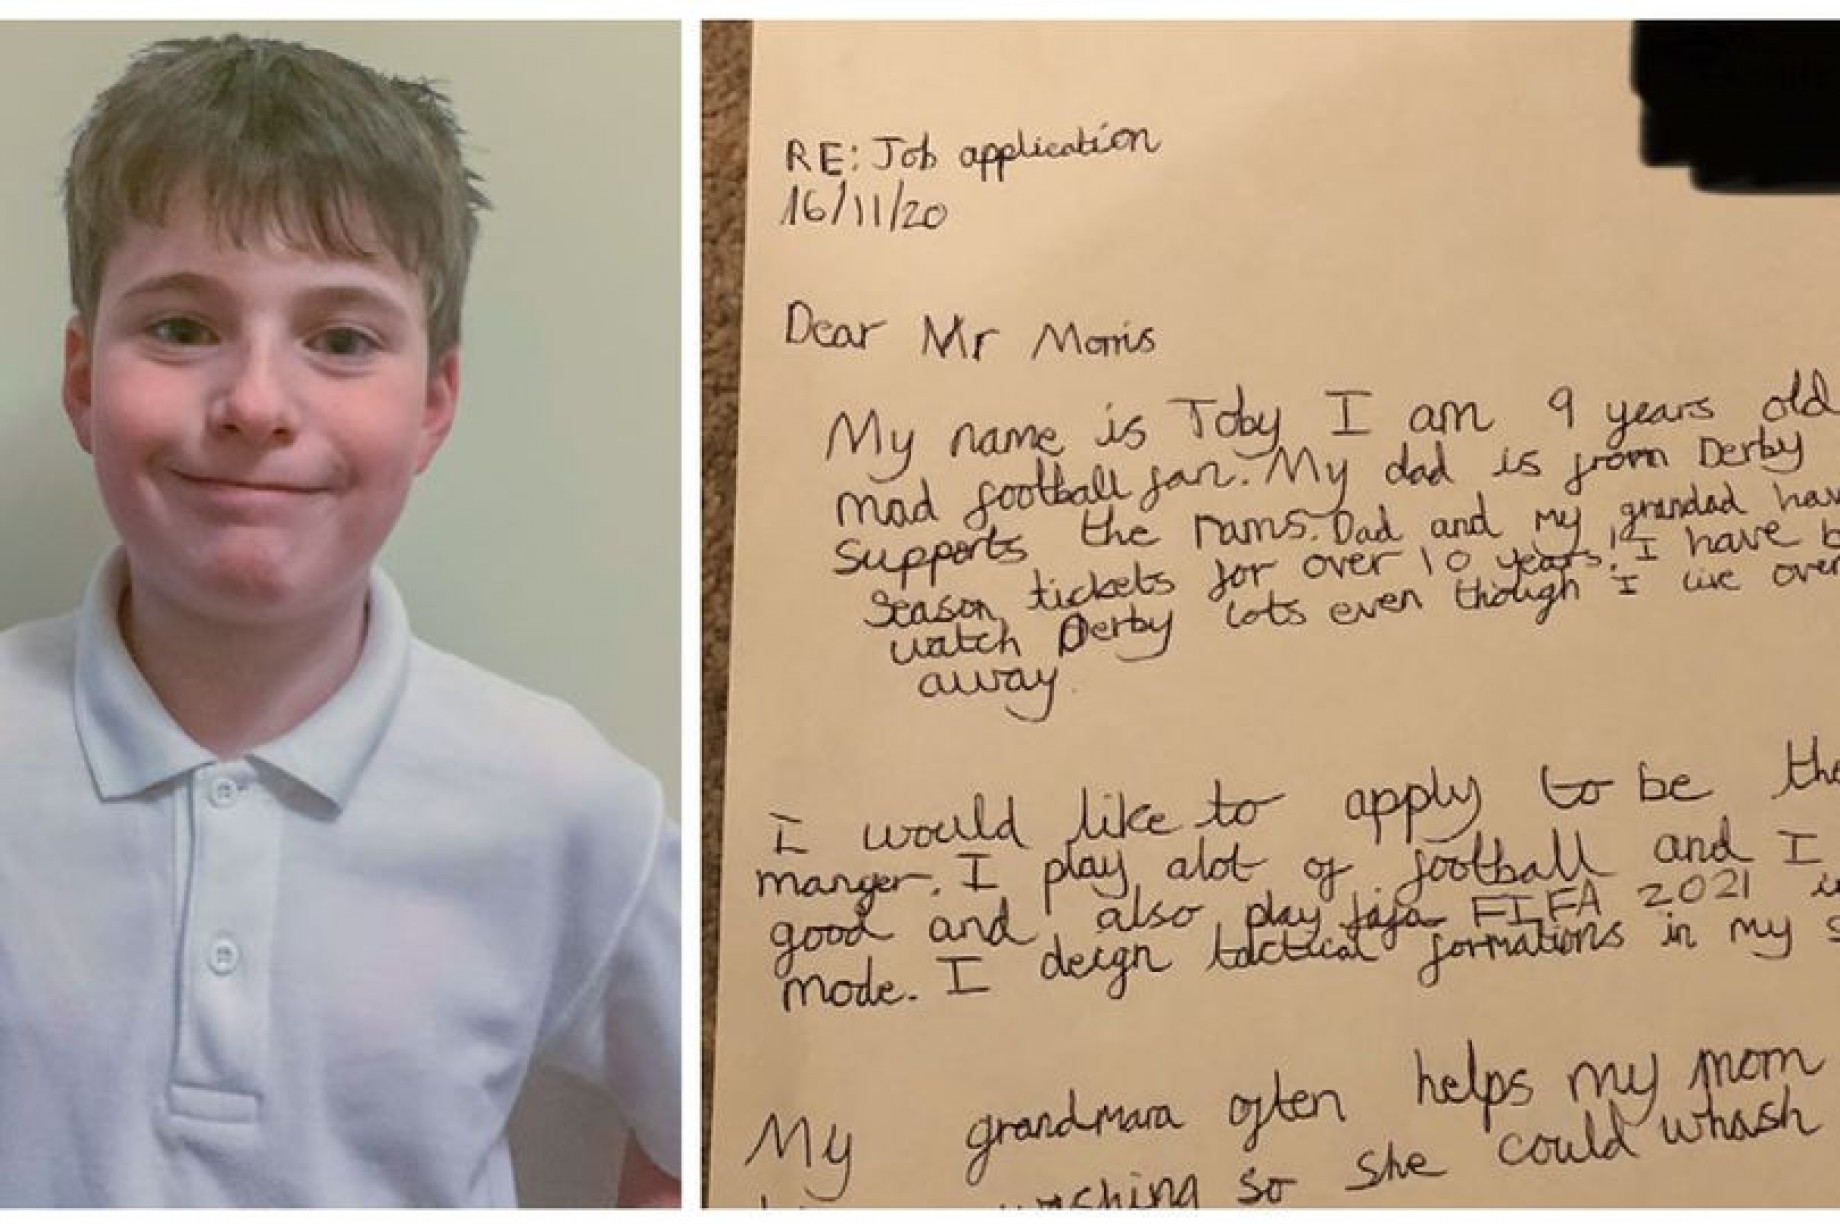 RE: Job application
16/11/20
Dear Mr Morris
My name is Toby I am 9 years old
mad football fan. My dad is from Derby
supports the rams. Dad and my grandad hav
season tickets for over 10 years. I have b
watch Derby lots even though I live over
away.
I would like to apply to be the
manger. I play alot of football and I
good and also play fifa FIFA 2021 in
mode. I deign tactical formations in my s
My grandmara often helps my mom
washing so she could whash